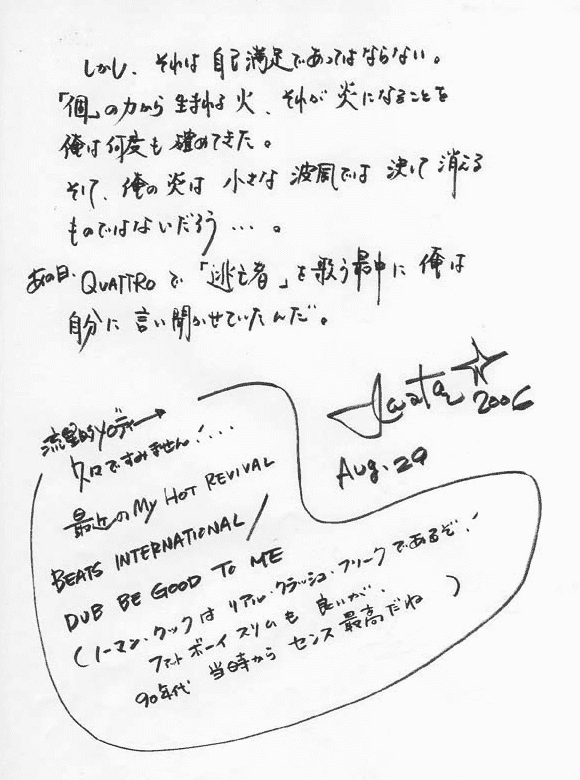 しかし、それは自己満足であってはならない。
「個」の力から生まれる火、それが炎になることを
俺は何度も確めてきた。
そして、俺の炎は小さな波風では決して消える
ものではないだろう・・・。
あの日、QUATTROで「逃亡者」を歌う最中に俺は
自分に言い聞かせていたんだ。
2006
Aug. 29
流星的メロディー→
久々ですみません!・・・
最近のMy HOT REVIVAL
BEATS INTERNATIONAL/
DUB BE GOOD TO ME
(ノーマン・クックはリアル・クラッシュ・フリークであるぞ!
ファットボーイスリムも良いが、
90年代当時からセンス最高だね)